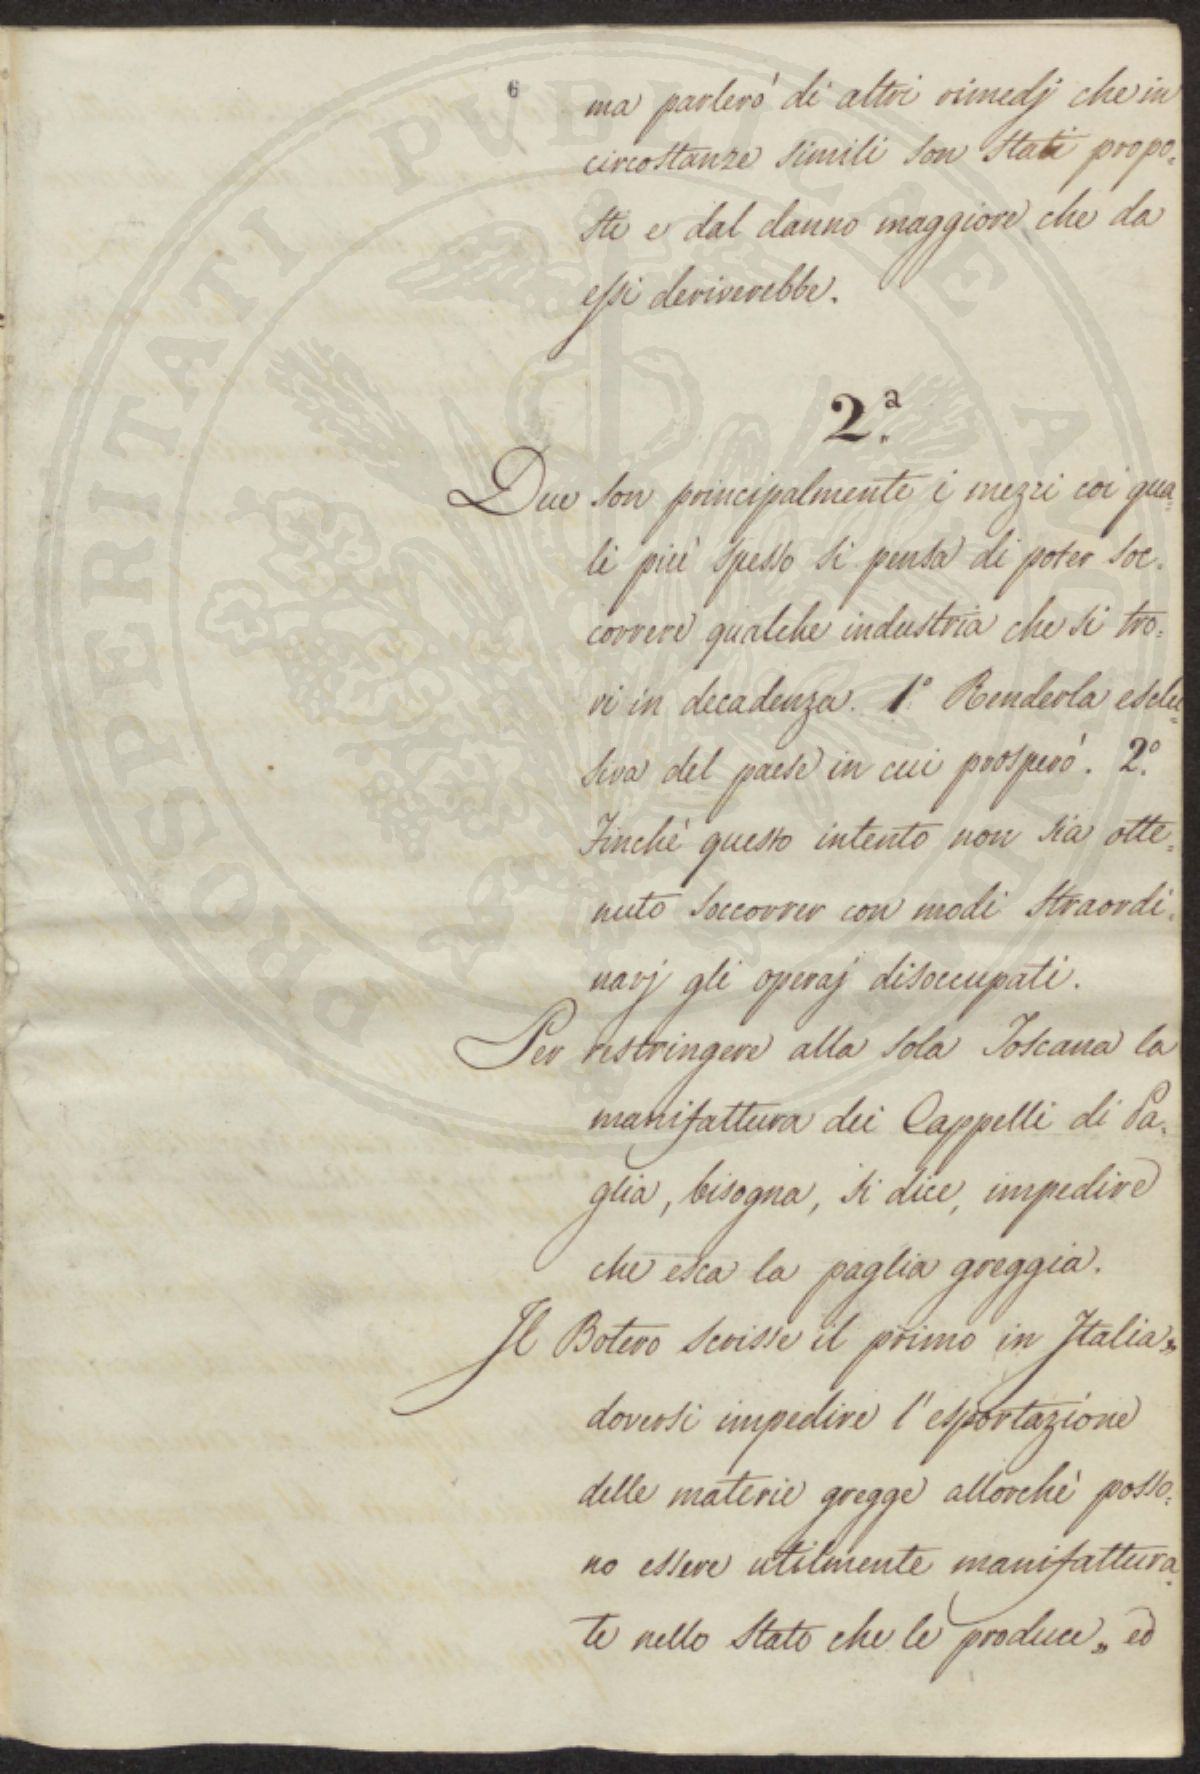 6
ma parlerò di altri rimedj che in
circostanze simili son stati propo=
sti e dal danno maggiore che da
essi deriverebbe.
2.ª
Due son principalmente i mezzi coi qua=
li più spesso si pensa di poter soc=
correre qualche industria che si tro=
vi in decadenza. 1.° Renderla esclu=
siva del paese in cui prosperò. 2.°
Finchè questo intento non sia otte=
nuto soccorrer con modi straordi=
narj gli operaj disoccupati.
Per restringere alla sola Toscana la
manifattura dei Cappelli di Pa=
glia, bisogna, si dice, impedire
che esca la paglia greggia.
Il Botero scrisse il primo in Italia„
doversi impedire l'esportazione
delle materie gregge allorchè posso=
no essere utilmente manifattura=
te nello Stato che le produce„ ed
PROSPERITATI PVBLICAE AVGENDAE